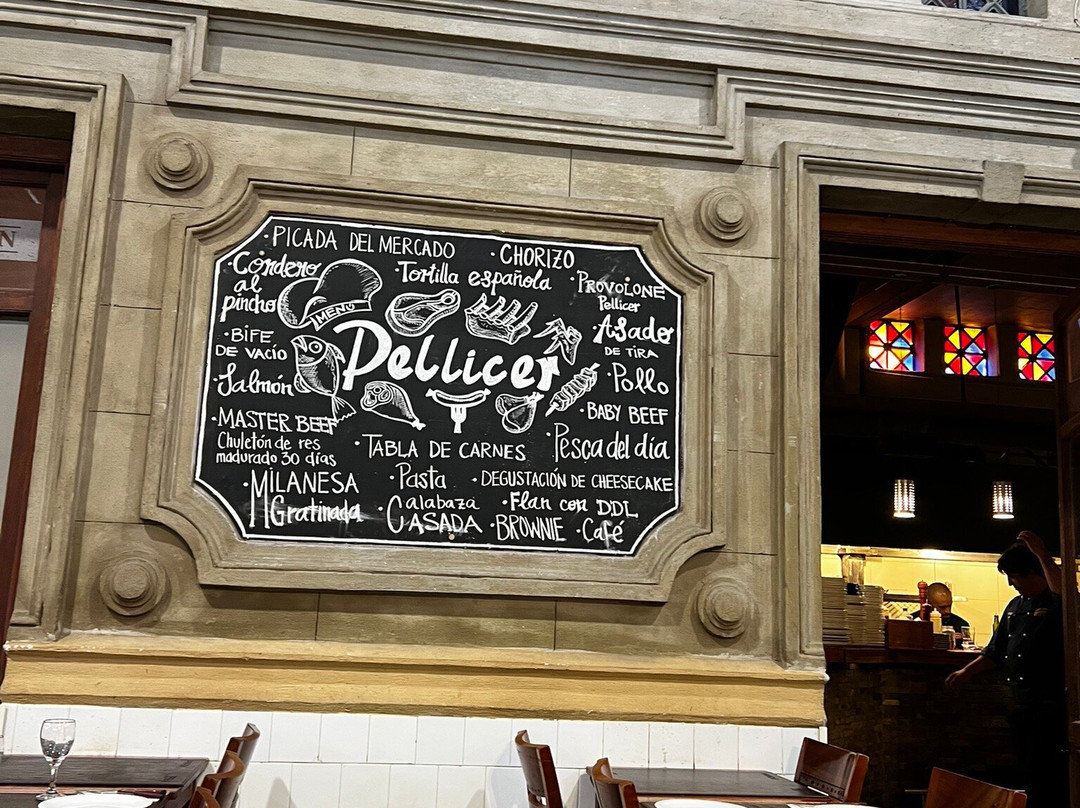 ·PICADA DEL MERCADO
·CHORIZO
·Cordero
al
pincho
·Tortilla española
·PROVOLONE
Pellicer
MENÚ
·Asado
DE TIRA
·BIFE
DE VACÍO
Pellicer
·Salmón
·Pollo
·BABY BEEF
·MASTER BEEF
Chuletón de res
madurado 30 días
·TABLA DE CARNES
·Pesca del día
·MILANESA
Gratinada
·Pasta
·DEGUSTACIÓN DE CHEESECAKE
·Calabaza
CASADA
·Flan con DDL
·BROWNIE
·Café
N